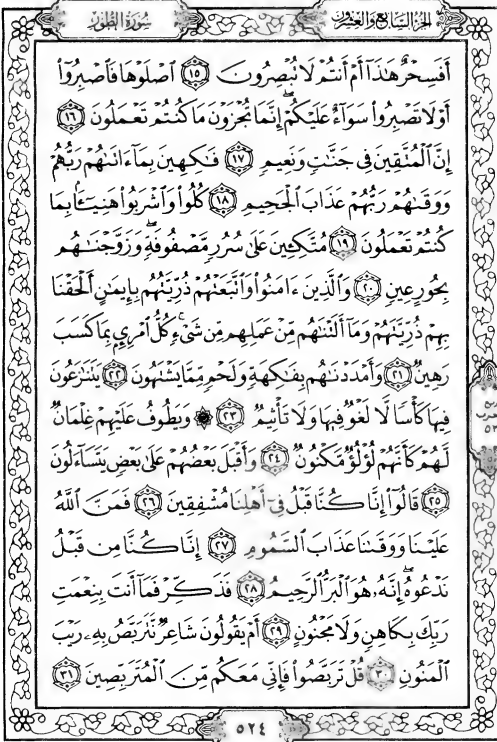 سورة الطور
الجزء السابع والعشرون
أَفَسِحْرٌ هَٰذَآ أَمْ أَنتُمْ لَا تُبْصِرُونَ ١٥ ٱصْلَوْهَا فَٱصْبِرُوٓا۟
أَوْ لَا تَصْبِرُوا۟ سَوَآءٌ عَلَيْكُمْ ۖ إِنَّمَا تُجْزَوْنَ مَا كُنتُمْ تَعْمَلُونَ ١٦
إِنَّ ٱلْمُتَّقِينَ فِى جَنَّٰتٍ وَنَعِيمٍ ١٧ فَٰكِهِينَ بِمَآ ءَاتَىٰهُمْ رَبُّهُمْ
وَوَقَىٰهُمْ رَبُّهُمْ عَذَابَ ٱلْجَحِيمِ ١٨ كُلُوا۟ وَٱشْرَبُوا۟ هَنِيٓـًٔۢا بِمَا
كُنتُمْ تَعْمَلُونَ ١٩ مُتَّكِـِٔينَ عَلَىٰ سُرُرٍ مَّصْفُوفَةٍ ۖ وَزَوَّجْنَٰهُم
بِحُورٍ عِينٍ ٢٠ وَٱلَّذِينَ ءَامَنُوا۟ وَٱتَّبَعَتْهُمْ ذُرِّيَّتُهُم بِإِيمَٰنٍ أَلْحَقْنَا
بِهِمْ ذُرِّيَّتَهُمْ وَمَآ أَلَتْنَٰهُم مِّنْ عَمَلِهِم مِّن شَىْءٍ ۚ كُلُّ ٱمْرِئٍۭ بِمَا كَسَبَ
رَهِينٌ ٢١ وَأَمْدَدْنَٰهُم بِفَٰكِهَةٍ وَلَحْمٍ مِّمَّا يَشْتَهُونَ ٢٢ يَتَنَٰزَعُونَ
فِيهَا كَأْسًا لَّا لَغْوٌ فِيهَا وَلَا تَأْثِيمٌ ٢٣ ۞ وَيَطُوفُ عَلَيْهِمْ غِلْمَانٌ
لَّهُمْ كَأَنَّهُمْ لُؤْلُؤٌ مَّكْنُونٌ ٢٤ وَأَقْبَلَ بَعْضُهُمْ عَلَىٰ بَعْضٍ يَتَسَآءَلُونَ
٢٥ قَالُوٓا۟ إِنَّا كُنَّا قَبْلُ فِىٓ أَهْلِنَا مُشْفِقِينَ ٢٦ فَمَنَّ ٱللَّهُ
عَلَيْنَا وَوَقَىٰنَا عَذَابَ ٱلسَّمُومِ ٢٧ إِنَّا كُنَّا مِن قَبْلُ
نَدْعُوهُ ۖ إِنَّهُۥ هُوَ ٱلْبَرُّ ٱلرَّحِيمُ ٢٨ فَذَكِّرْ فَمَآ أَنتَ بِنِعْمَتِ
رَبِّكَ بِكَاهِنٍ وَلَا مَجْنُونٍ ٢٩ أَمْ يَقُولُونَ شَاعِرٌ نَّتَرَبَّصُ بِهِۦ رَيْبَ
ٱلْمَنُونِ ٣٠ قُلْ تَرَبَّصُوا۟ فَإِنِّى مَعَكُم مِّنَ ٱلْمُتَرَبِّصِينَ ٣١
٥٢٤